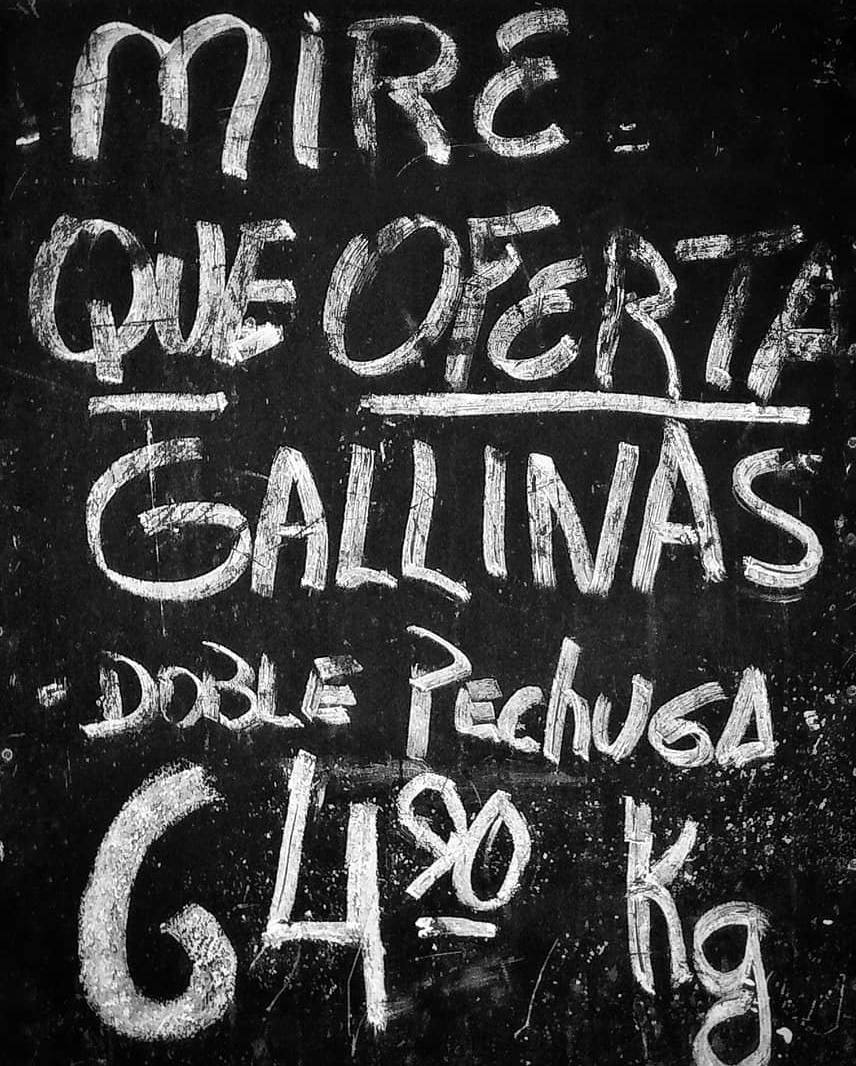 MIRE
QUE OFERTA
GALLINAS
DOBLE PEChUGA
64 90 Kg